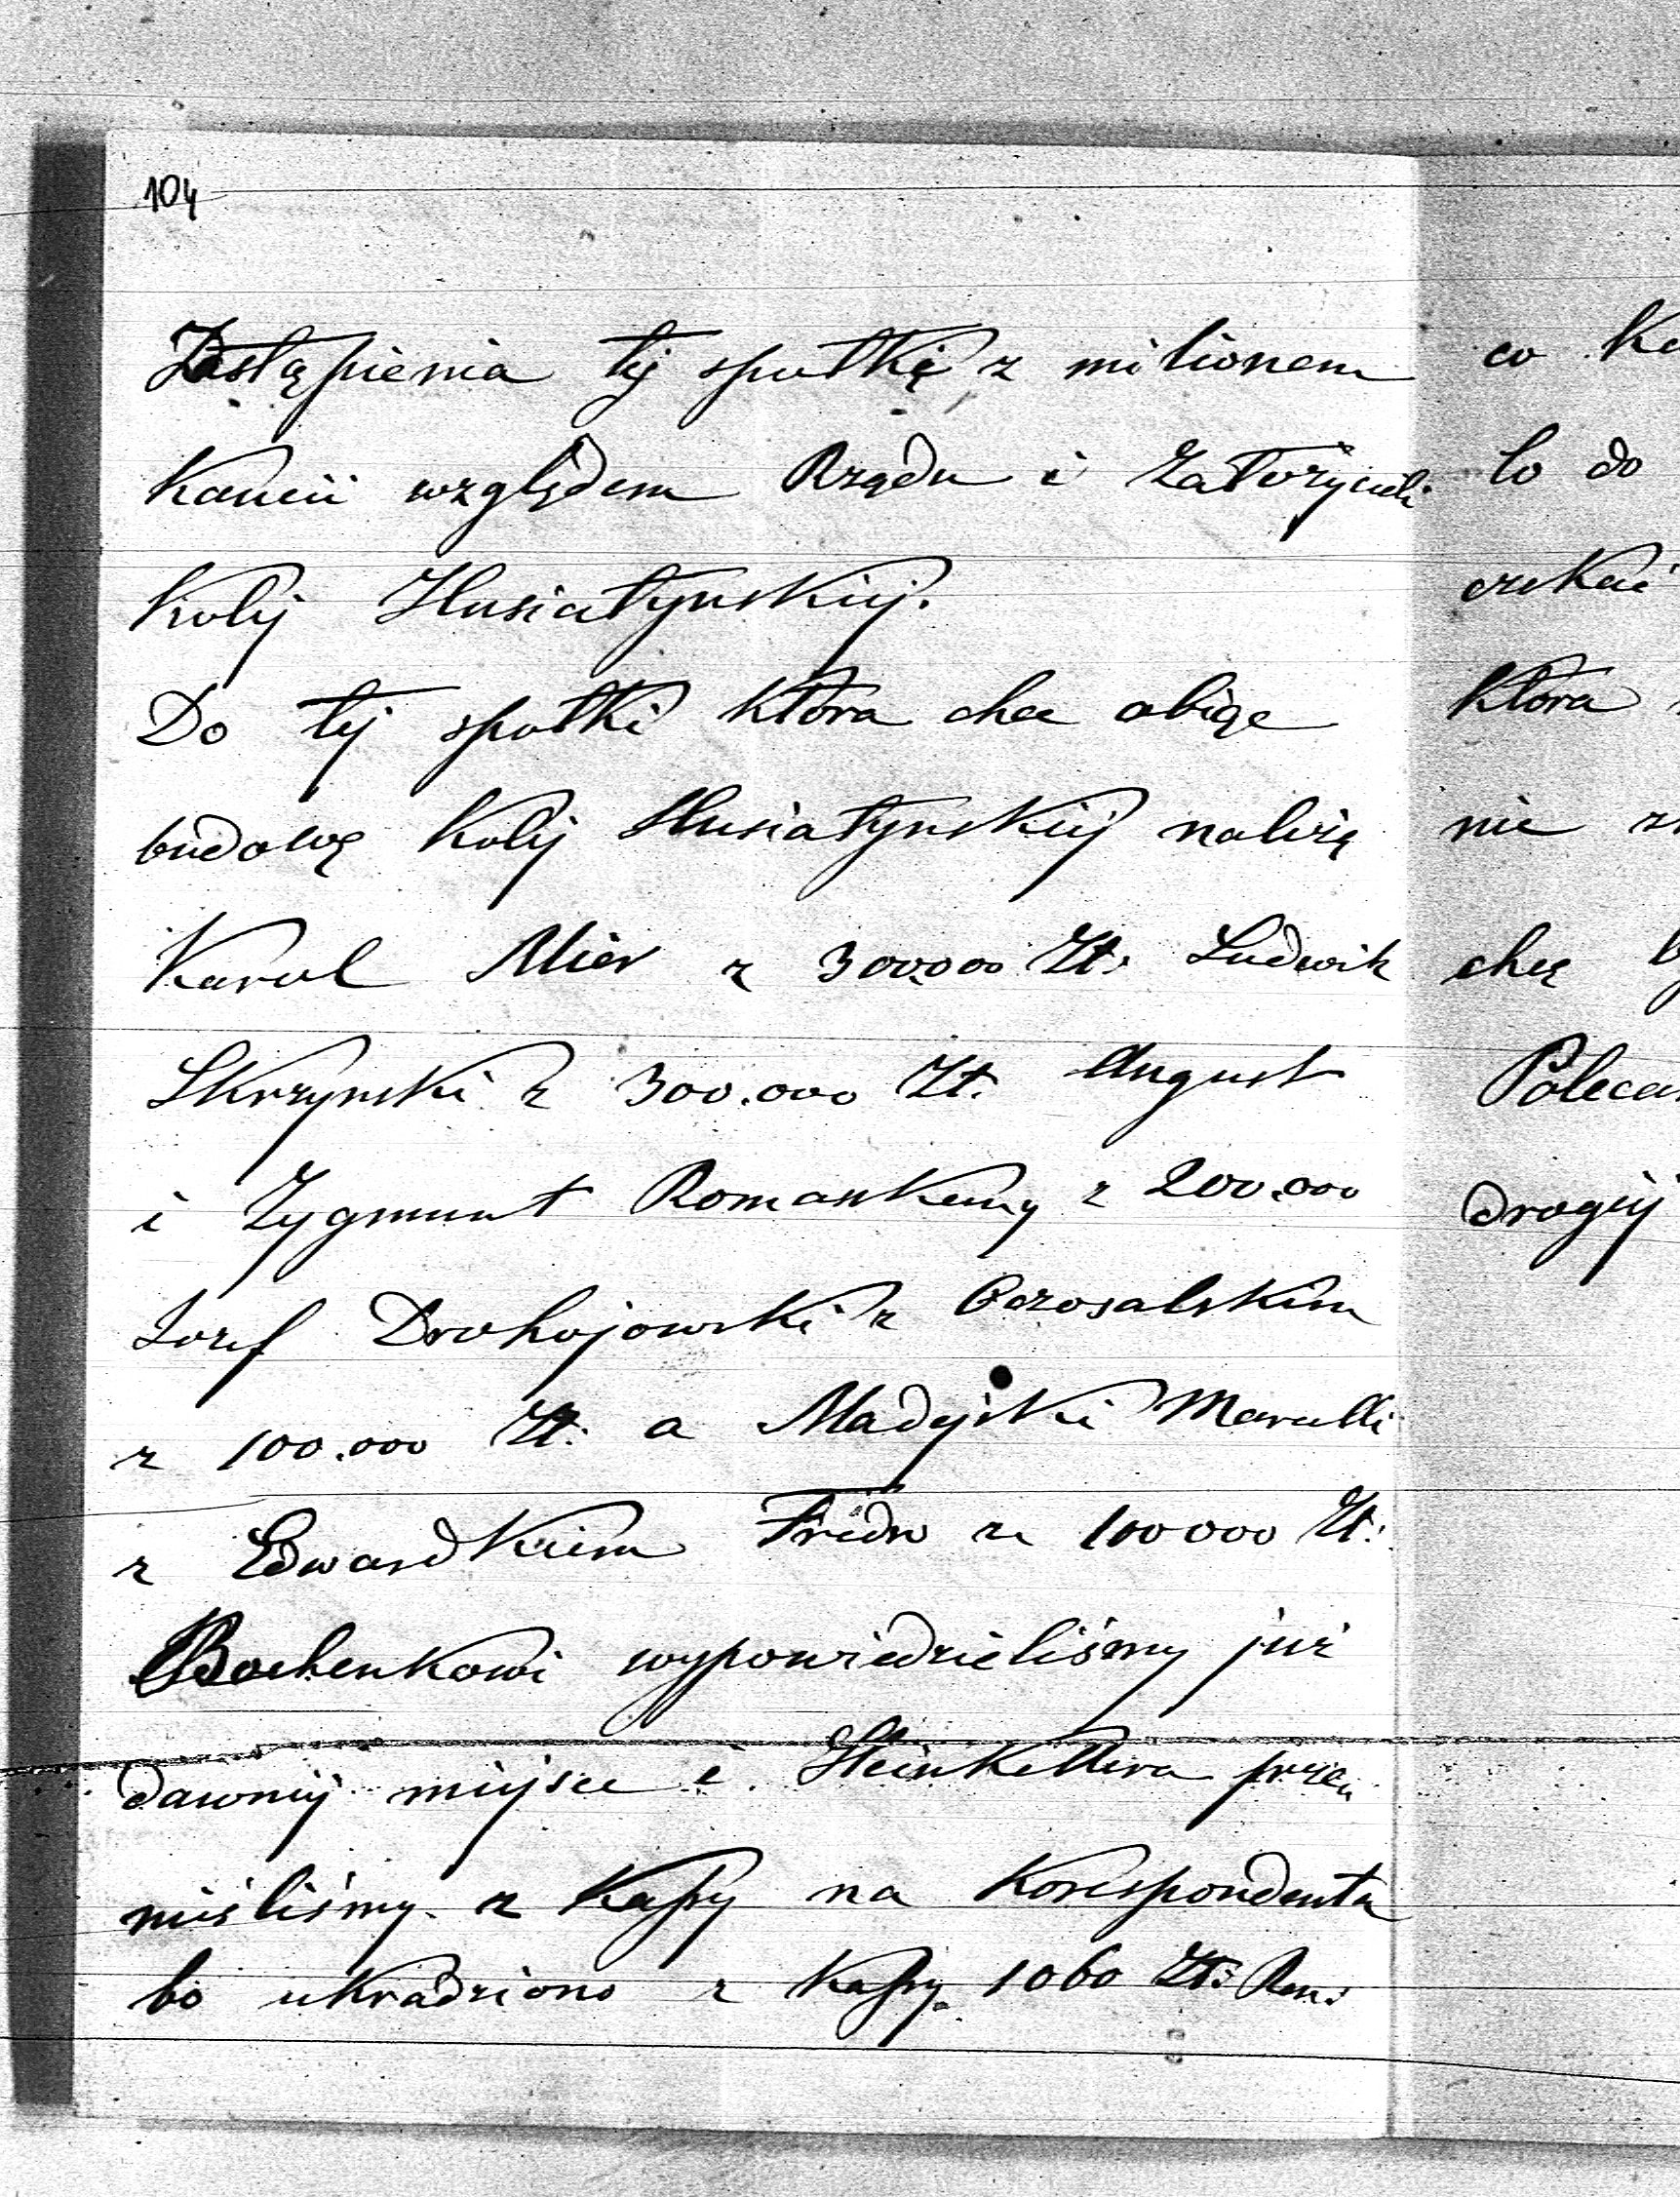 104
Zastąpienia tej spułkę z milionem
Kaucii względem Rządu i Założycieli
Kolij Husiatynskiej.
Do tej spułki która chce obiąc
budowę Kolij Husiatynskiej należą
Karol Mier z 300.000 Zł: Ludwik
Skrzynski z 300.000 Zł. August
i Zygmunt Romaszkany z 200.000
Jozef Drohojowski z
z 100.000 Zł: a Madejski Marcelli
z Edwardkiem Fridr z 100000 Zł:
Bochenkowi wypowiedzieliśmy już
dawniej miejsce i Steinkellera przeu
nieśliśmy z Kassy na Korespondenta
bo ukradziono z Kassy 1060 Zł: Ren:
co
to do
czekać
która
nie
chcą
drogiej